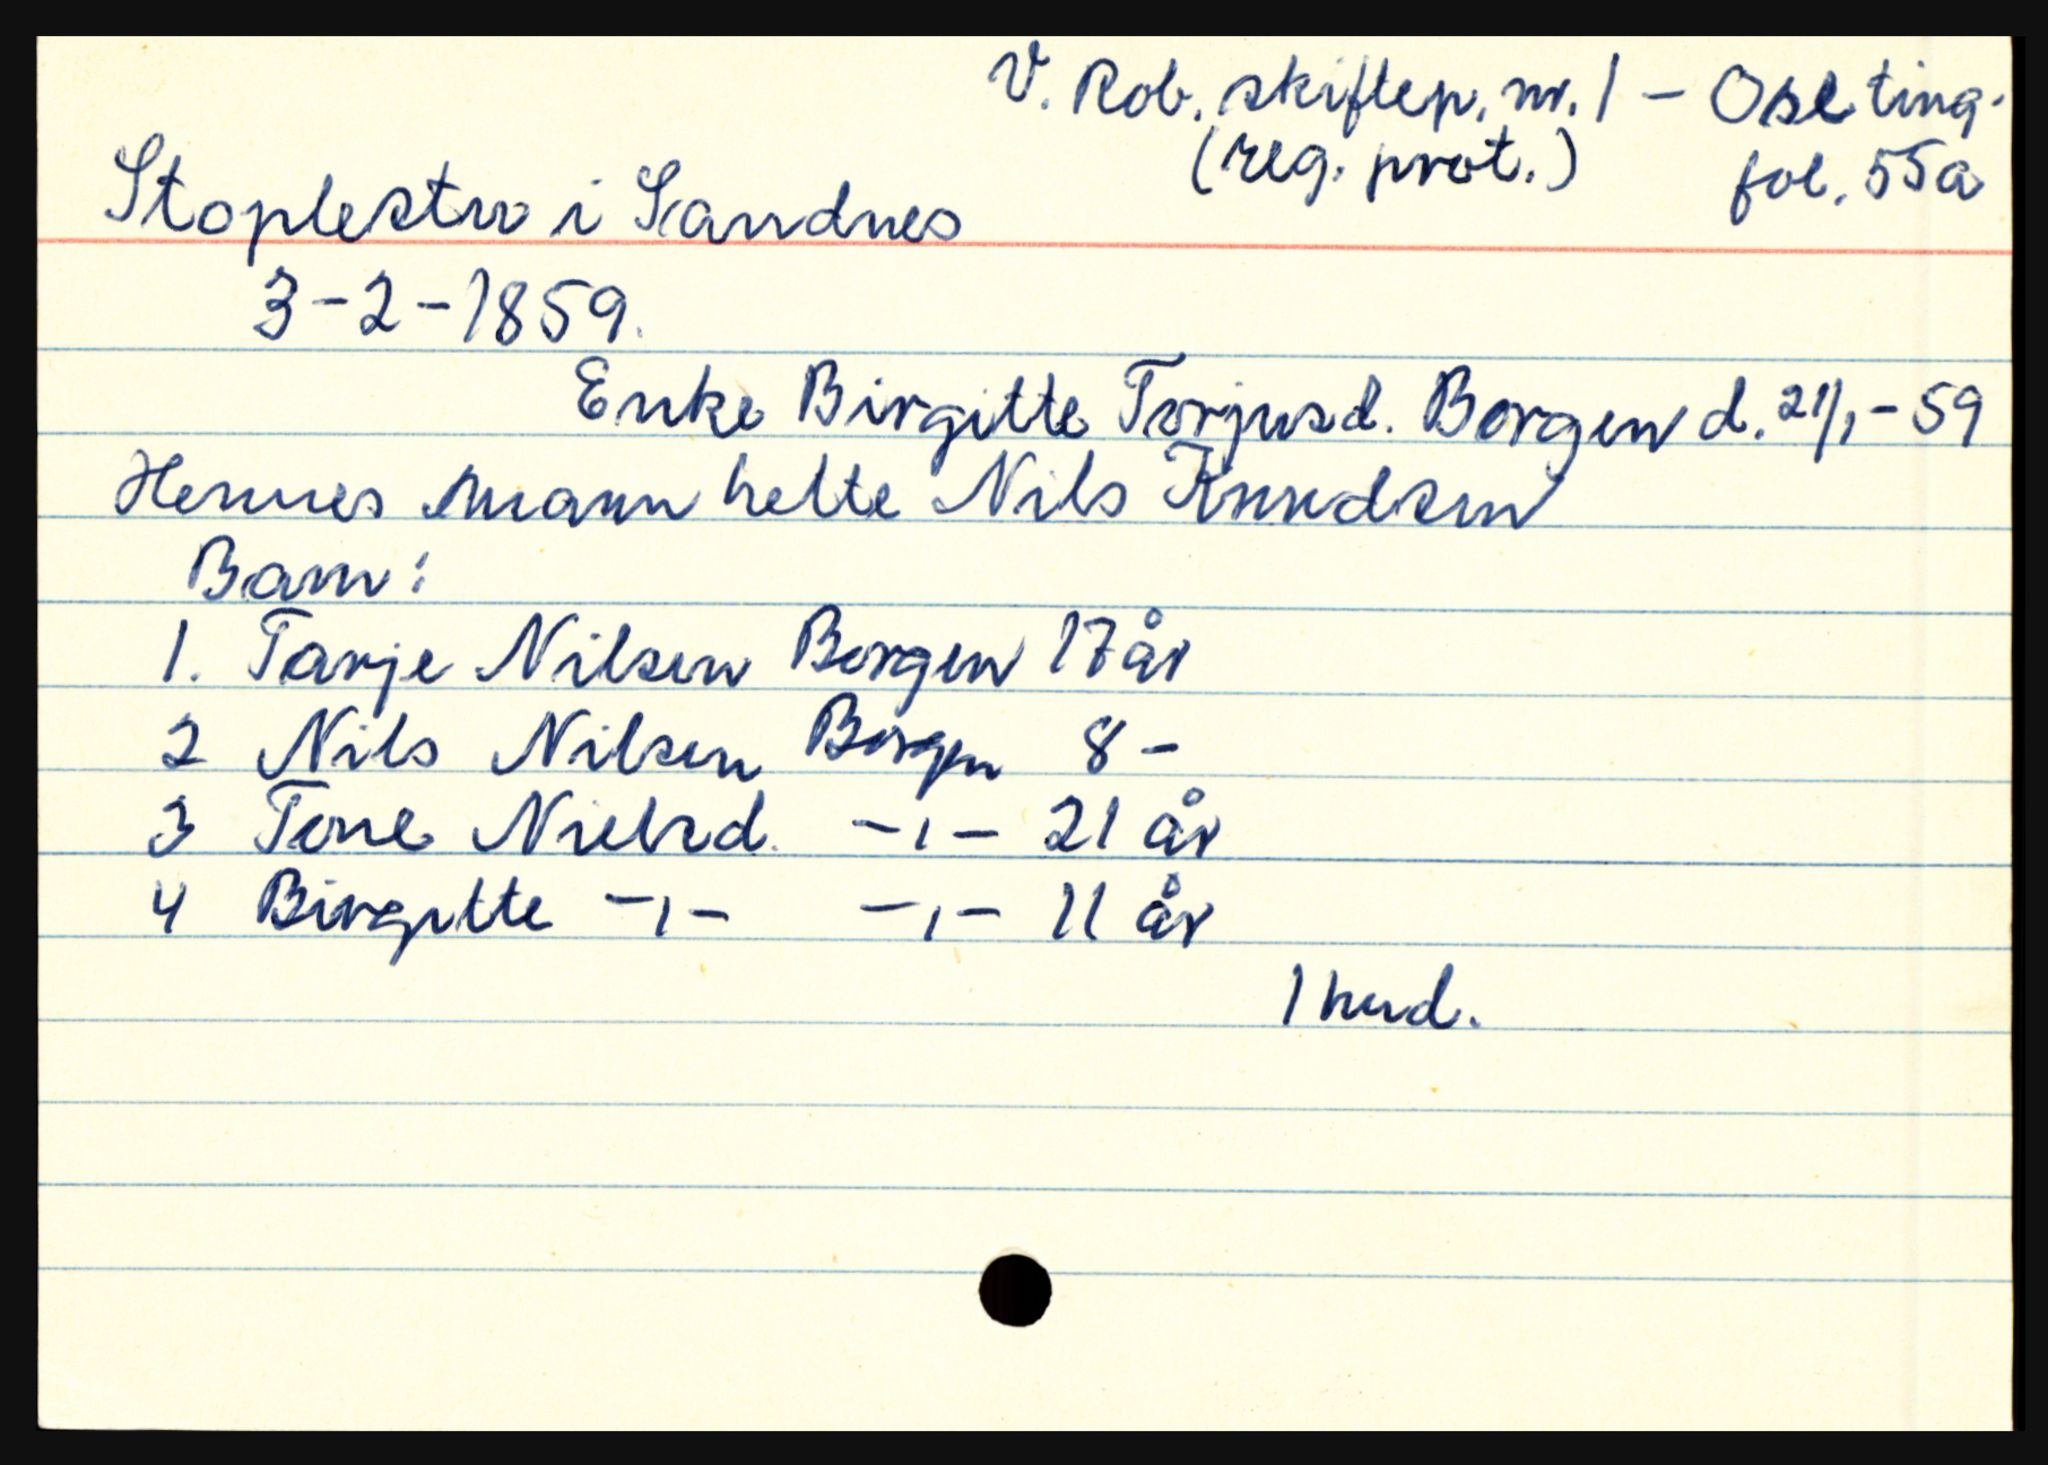 V. Rob. skiftep. nr. 1 - Ose ting.
(reg. prot.) fol. 55a
Stoplestu i Sandnes
3-2-1859.
Enke Birgitte Torjusd. Borgen d. 21/1-59
Hennes mann hette Nils Knudsen
Barn:
1. Tarje Nilsen Borgen 17 år
2 Nils Nilsen Borgen 8 -
3 Tone Nielsd. -,- 21 år
4 Birgitte -,- -,- 11 år
1 hud.